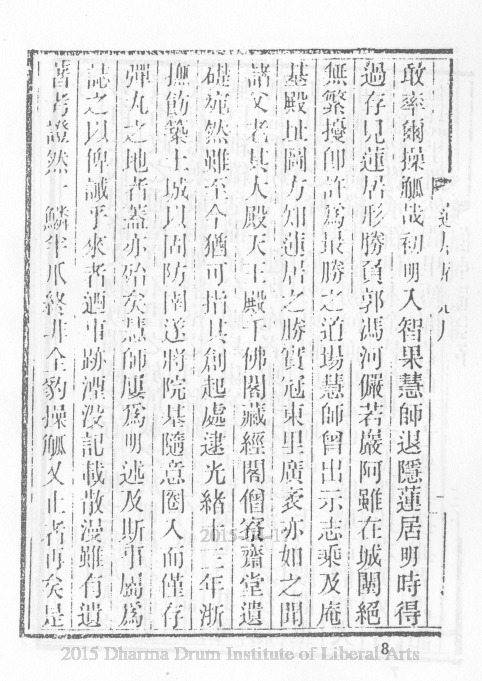 敢率爾操觚哉初明入智果慧師退隱蓮居明時得
過存見蓮居形勝負郭馮河儼若巖阿雖在城闉絕
無繁擾卽許爲最勝之道場慧師曾出示志乘及庵
基殿址圖方知蓮居之勝實冠東里廣袤亦如之聞
諸父老其大殿天王殿千佛閣藏經閣僧寮齋堂遺
礎宛然雖至今猶可指其創起處逮光緒十三年浙
撫飭築土城以固防閑遂將院基隨意圈入而僅存
彈丸之地者蓋亦殆矣慧師屢爲明述及斯事屬爲
誌之以俾誡乎來者迺事跡湮沒記載散漫雖有遺
耆考證然一鱗半爪終非全豹操觚又止者再矣是
2015 Dharma Drum Institute of Liberal Arts
8